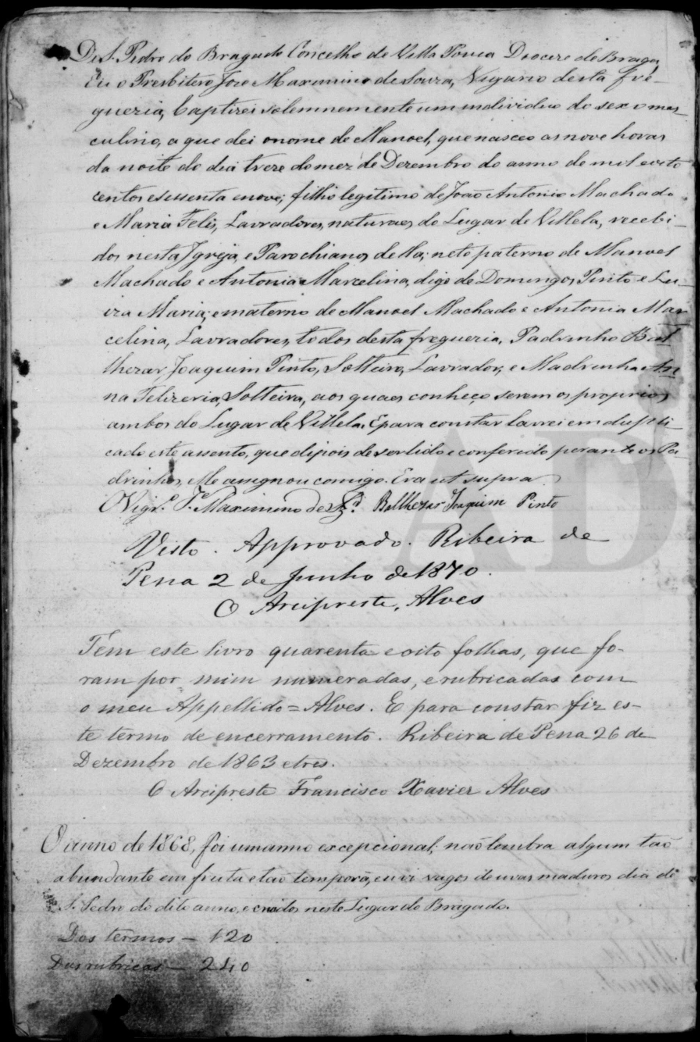 De S. Pedro do Bragado Concelho de Villa Pouca Diocese de Braga,
Eu o Presbitero Jose Maximino de Souza, Vigario desta fre-
guezia, baptizei solemnemente um individuo do sexo mas-
culino, a que dei o nome de Manoel, que nasceo as nove horas
da noite do dia treze do mez de Dezembro do anno de mil oito
centos esessenta enove; filho legitimo de João Antonio Machado
e Maria Felis, Lavradores, naturaes do Lugar de Villela, recebi-
dos nesta Igreja, e Parochianos della; neto paterno de Manoel
Machado e Antonia Marcelina, digo de Domingos Pinto e Lui-
za Maria; ematerno de Manoel Machado e Antonia Mar-
celina, Lavradores, todos desta freguezia, Padrinho Bal-
thezar Joaquim Pinto, Solteiro, Lavrador, e Madrinha An-
na Solteira, aos quaes conheço serem os proprios
ambos do Lugar de Villela. Epara constar lavrei em dupli-
cado este assento, que depois de ser lido e conferido perante os Pa-
drinhos, elle assignou comigo. Era ut supra.
O Vigr.º J.e Maximino de Sz.a Balthezar Joaquim Pinto
Visto. Approvado. Ribeira de
Pena 2 de Junho de 1870.
O Arcipreste, Alves
Tem este livro quarenta e oito folhas, que fo-
ram por mim numeradas, e rubricadas com
o meu Appellido = Alves. E para constar fiz es-
te termo de encerramento. Ribeira de Pena 26 de
Dezembro de 1863 e tres.
O Arcipreste Francisco Xavier Alves
O anno de 1868, foi umanno excepcional, não lembra algum tão
abundante em fruta e tão temporã, eu vi vagos de uvas maduros dia de
S. Pedro do dito anno, e criados neste Lugar do Bragado.
Dos termos — 120
Das rubricas — 240
AD